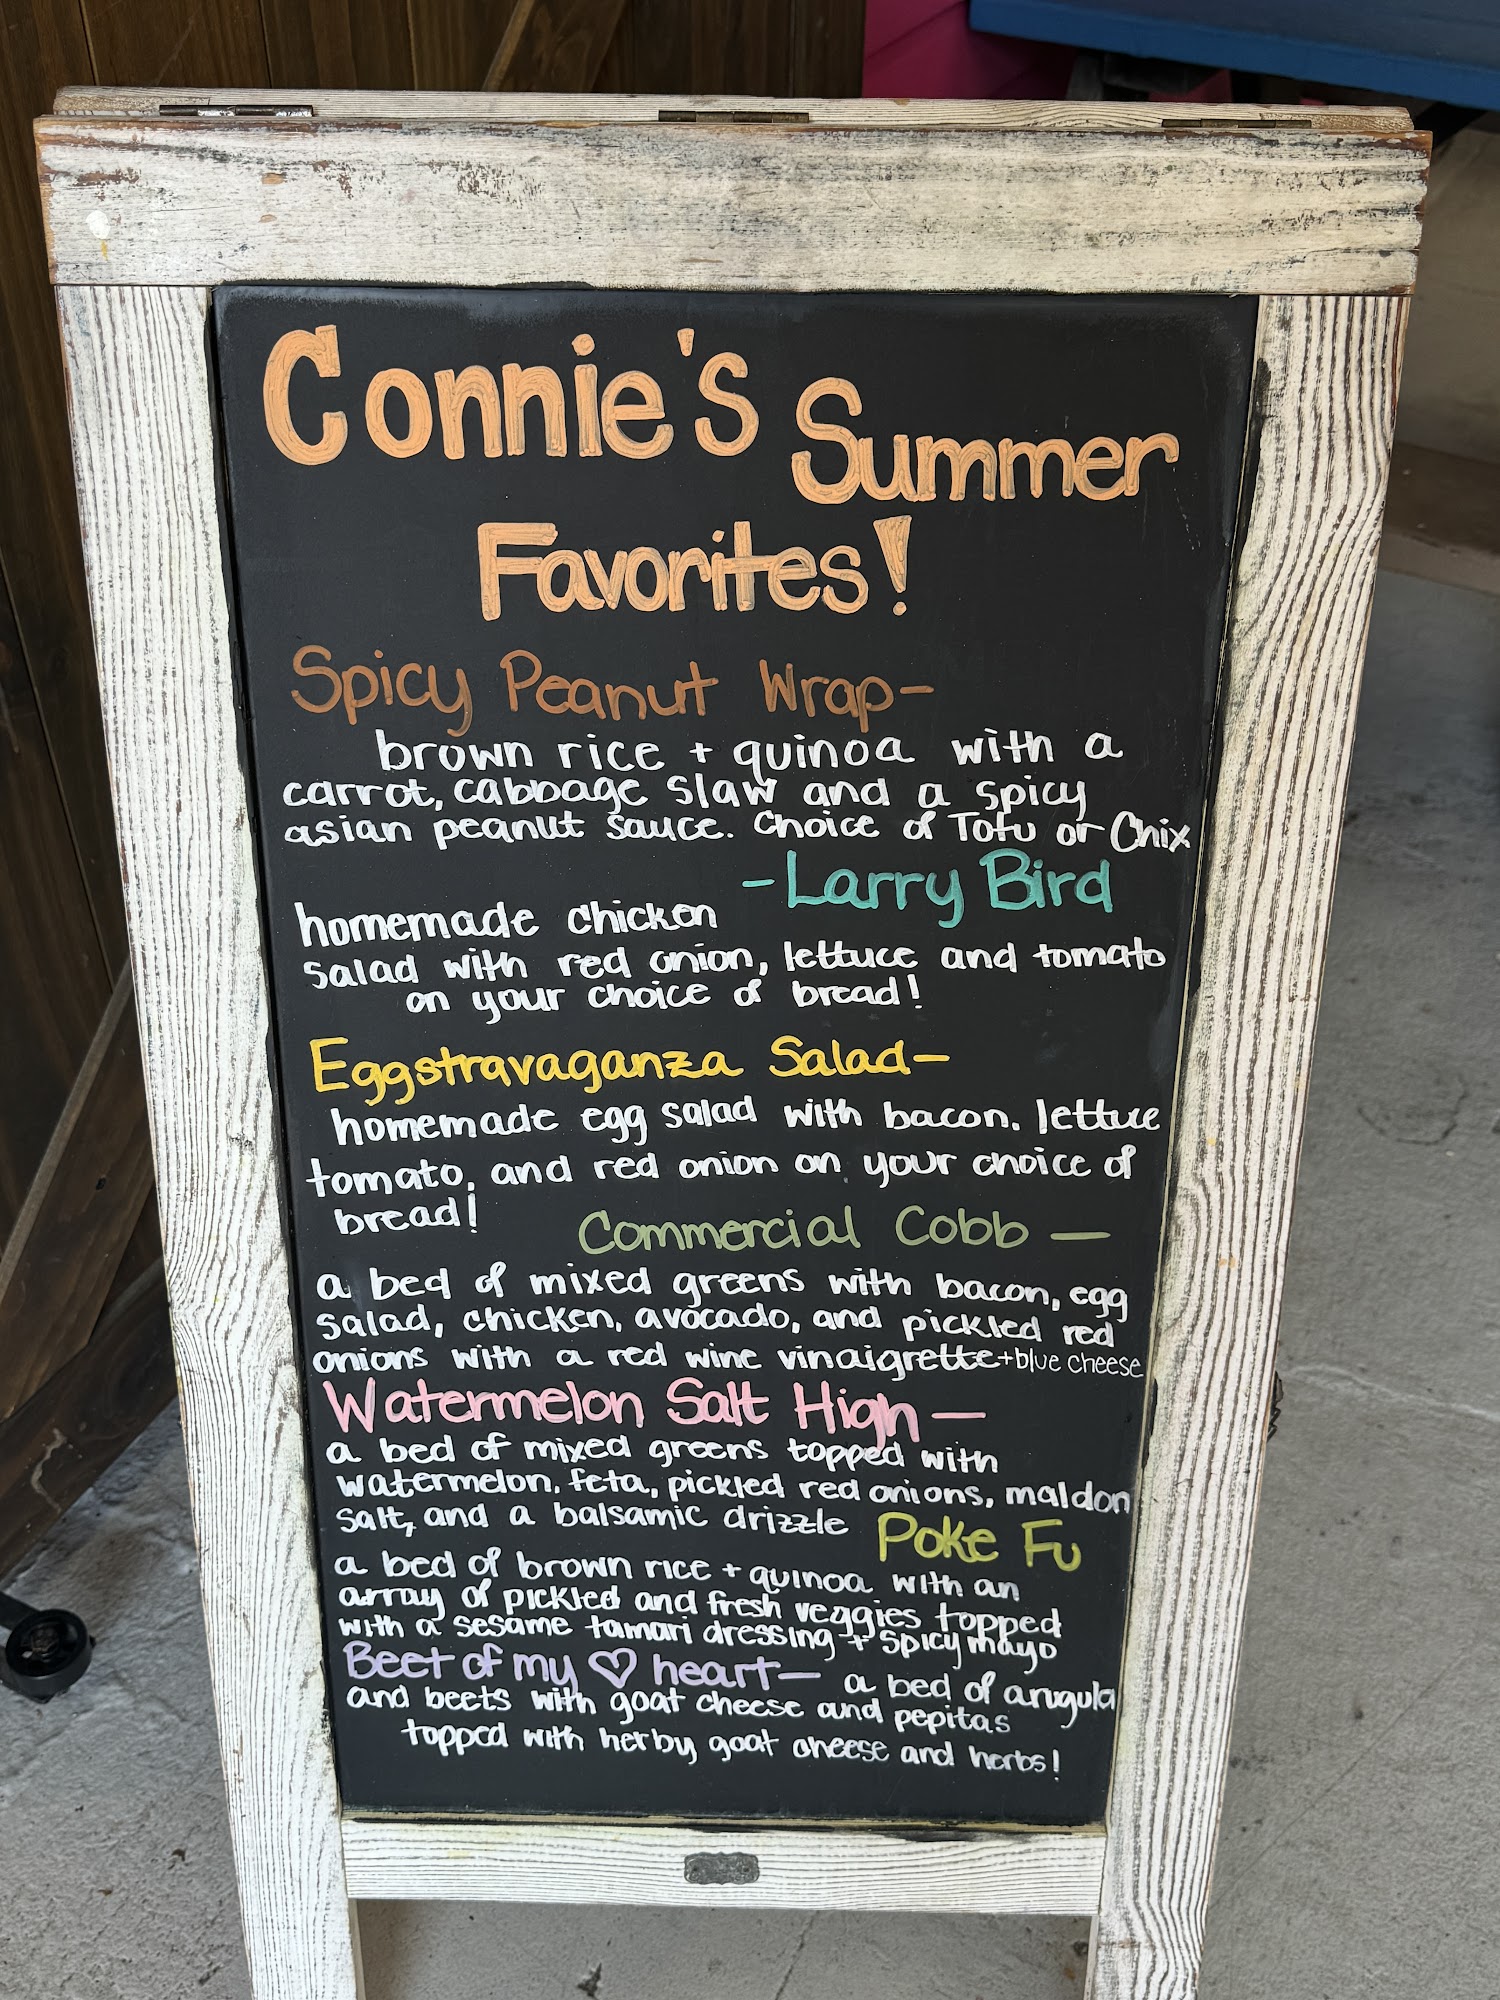 Connie's Summer
Favorites!
Spicy Peanut Wrap-
brown rice + quinoa with a
carrot, cabbage slaw and a spicy
asian peanut sauce. Choice of Tofu or Chix
-Larry Bird
homemade chicken
salad with red onion, lettuce and tomato
on your choice of bread!
Eggstravaganza Salad-
homemade egg salad with bacon, lettuce
tomato, and red onion on your choice of
bread!
Commercial Cobb -
a bed of mixed greens with bacon, egg
salad, chicken, avocado, and pickled red
onions with a red wine vinaigrette + blue cheese
Watermelon Salt High -
a bed of mixed greens topped with
watermelon, feta, pickled red onions, maldon
salt, and a balsamic drizzle
Poke Fu
a bed of brown rice + quinoa with an
array of pickled and fresh veggies topped
with a sesame tamari dressing + spicy mayo
Beet of my ♡ heart- a bed of arugula
and beets with goat cheese and pepitas
topped with herby goat cheese and herbs!